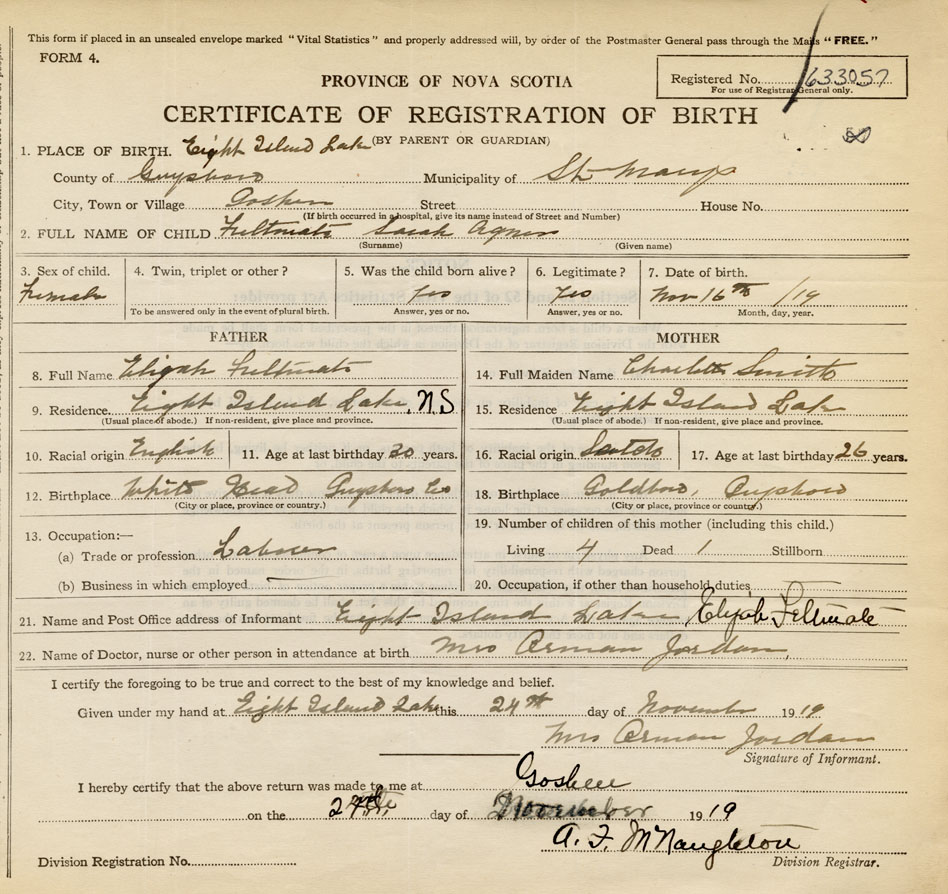 This form if placed in an unsealed envelope marked "Vital Statistics" and properly addressed will, by order of the Postmaster General pass through the Mails "FREE."
FORM 4.
PROVINCE OF NOVA SCOTIA
Registered No. 633057
For use of Registrar General only.
CERTIFICATE OF REGISTRATION OF BIRTH
(BY PARENT OR GUARDIAN)
1. PLACE OF BIRTH. Eight Island Lake
County of Guysboro Municipality of St Marys
City, Town or Village Goshen Street House No.
(If birth occurred in a hospital, give its name instead of Street and Number)
2. FULL NAME OF CHILD Feltmate Sarah Agnes
(Surname) (Given name)
3. Sex of child. 4. Twin, triplet or other? 5. Was the child born alive? 6. Legitimate? 7. Date of birth.
Female Yes Yes Nov 16th /19
To be answered only in the event of plural birth. Answer, yes or no. Answer, yes or no. Month, day, year.
FATHER MOTHER
8. Full Name Elijah Feltmate
14. Full Maiden Name Charlotte Smith
9. Residence. Eight Island Lake, N.S
(Usual place of abode.) If non-resident, give place and province.
15. Residence Eight Island Lake
(Usual place of abode.) If non-resident, give place and province.
10. Racial origin English 11. Age at last birthday 30 years.
16. Racial origin Scotch 17. Age at last birthday 26 years.
12. Birthplace White Head Guysboro Co
(City or place, province or country.)
18. Birthplace Goldboro, Guysboro
(City or place, province or country.)
13. Occupation:—
(a) Trade or profession Labourer
(b) Business in which employed
19. Number of children of this mother (including this child.)
Living 4 Dead 1 Stillborn
20. Occupation, if other than household duties
21. Name and Post Office address of Informant Eight Island Lake, Elijah Feltmate
22. Name of Doctor, nurse or other person in attendance at birth Mrs Arman Jordan
I certify the foregoing to be true and correct to the best of my knowledge and belief.
Given under my hand at Eight Island Lake this 24th day of November 1919
Mrs Arman Jordan
Signature of Informant.
I hereby certify that the above return was made to me at Goshen
on the day of November 1919
A. F. McNaughton
Division Registration No. Division Registrar.